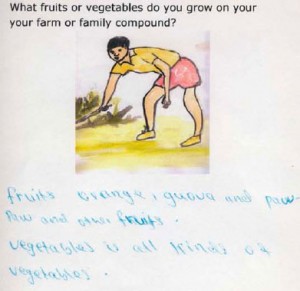 What fruits or vegetables do you grow on your
your farm or family compound?
fruits orange, guava and paw-
paw and other fruits.
vegetables is all kinds of
vegetables.